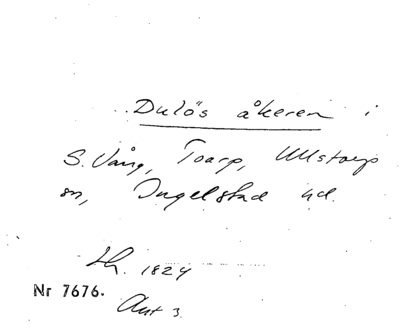 Dulös åkeren i
S. Vång, Toarp, Ullstorps
sn, Ingelstad hd.
Lh. 1824
Nr 7676.
Akt 3.